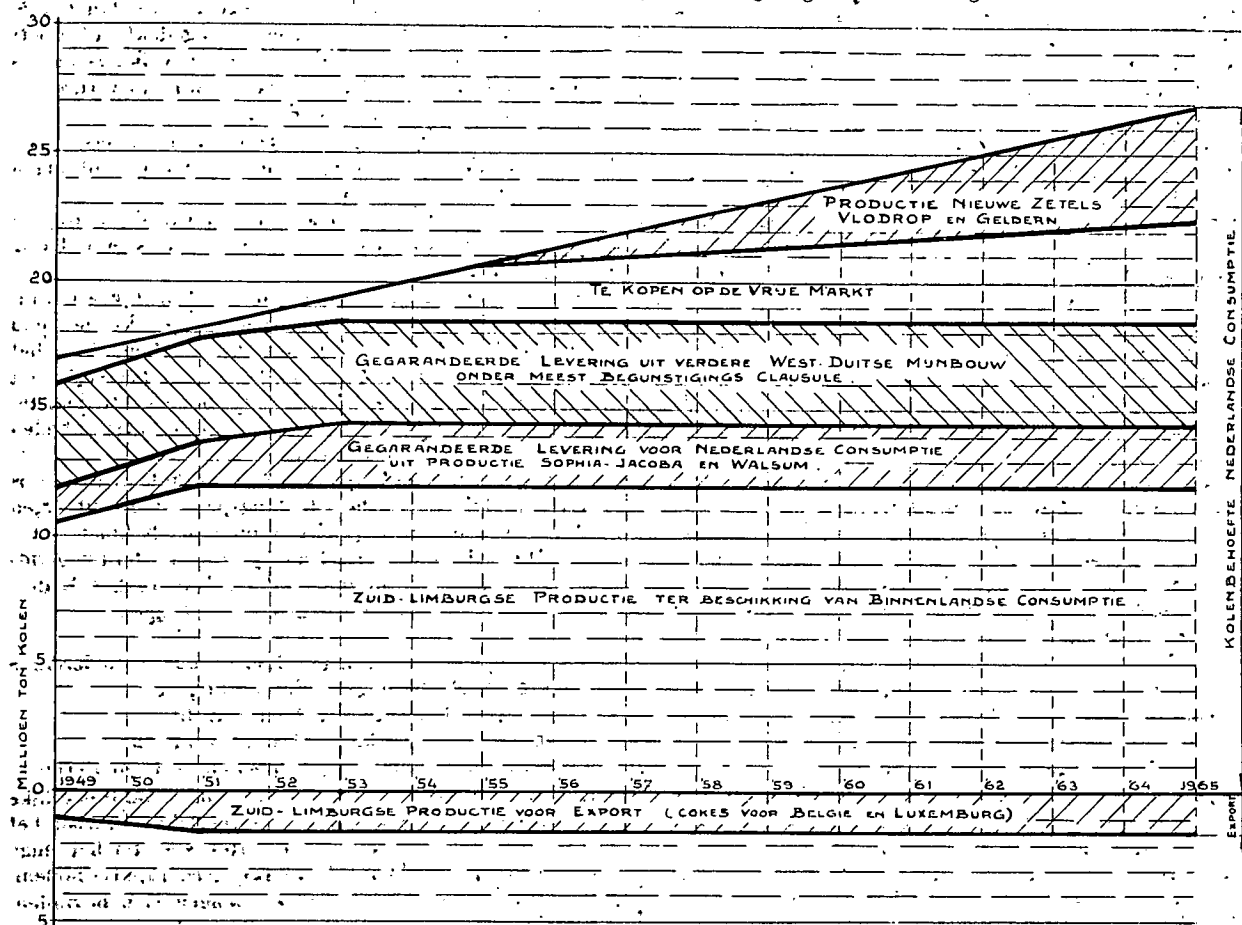 30
25
20
15
10
5
0
5
MILLIOEN TON KOLEN
PRODUCTIE NIEUWE ZETELS
VLODROP EN GELDERN
TE KOPEN OP DE VRIJE MARKT
GEGARANDEERDE LEVERING UIT VERDERE WEST-DUITSE MIJNBOUW
ONDER MEEST BEGUNSTIGINGS CLAUSULE.
GEGARANDEERDE LEVERING VOOR NEDERLANDSE CONSUMPTIE
UIT PRODUCTIE SOPHIA-JACOBA EN WALSUM.
ZUID-LIMBURGSE PRODUCTIE TER BESCHIKKING VAN BINNENLANDSE CONSUMPTIE.
1949 '50 '51 '52 '53 '54 '55 '56 '57 '58 '59 '60 '61 '62 '63 '64 1965
ZUID-LIMBURGSE PRODUCTIE VOOR EXPORT (COKES VOOR BELGIE EN LUXEMBURG)
KOLENBEHOEFTE NEDERLANDSE CONSUMPTIE.
EXPORT